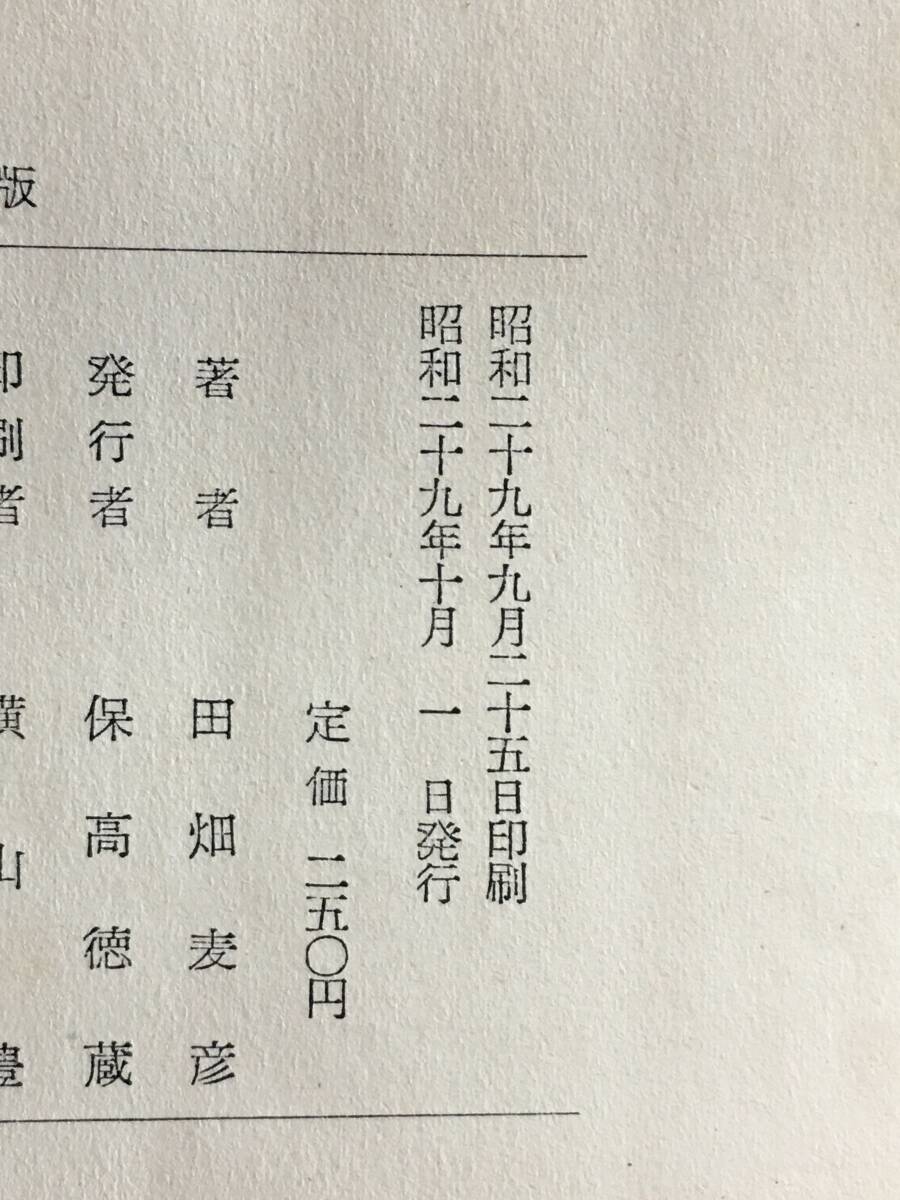 版
昭和二十九年九月二十五日印刷
昭和二十九年十月 一 日発行
定価 二五〇円
著者 田畑麦彦
発行者 保高徳蔵
印刷者 横山豊